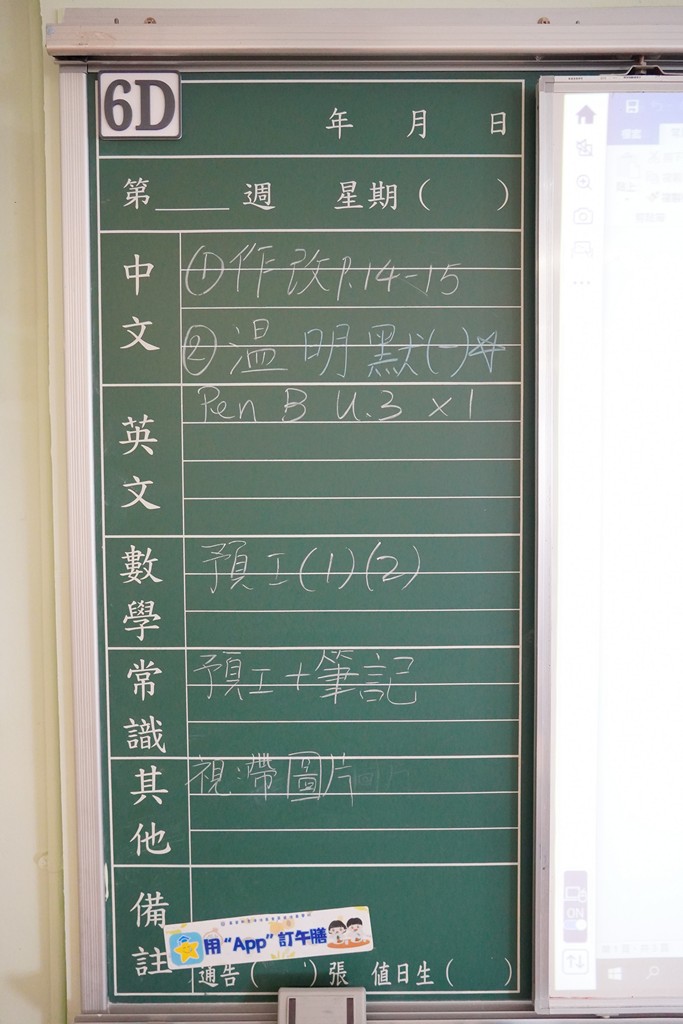 6D
年 月 日
第____週 星期( )
中文
①作改P.14-15
②溫明默(一)☆
英文
Pen B U.3 x1
數學
預工(1)(2)
常識
預工+筆記
其他
視:帶圖片
備註
用“App”訂午膳
通告( )張 值日生( )
ON